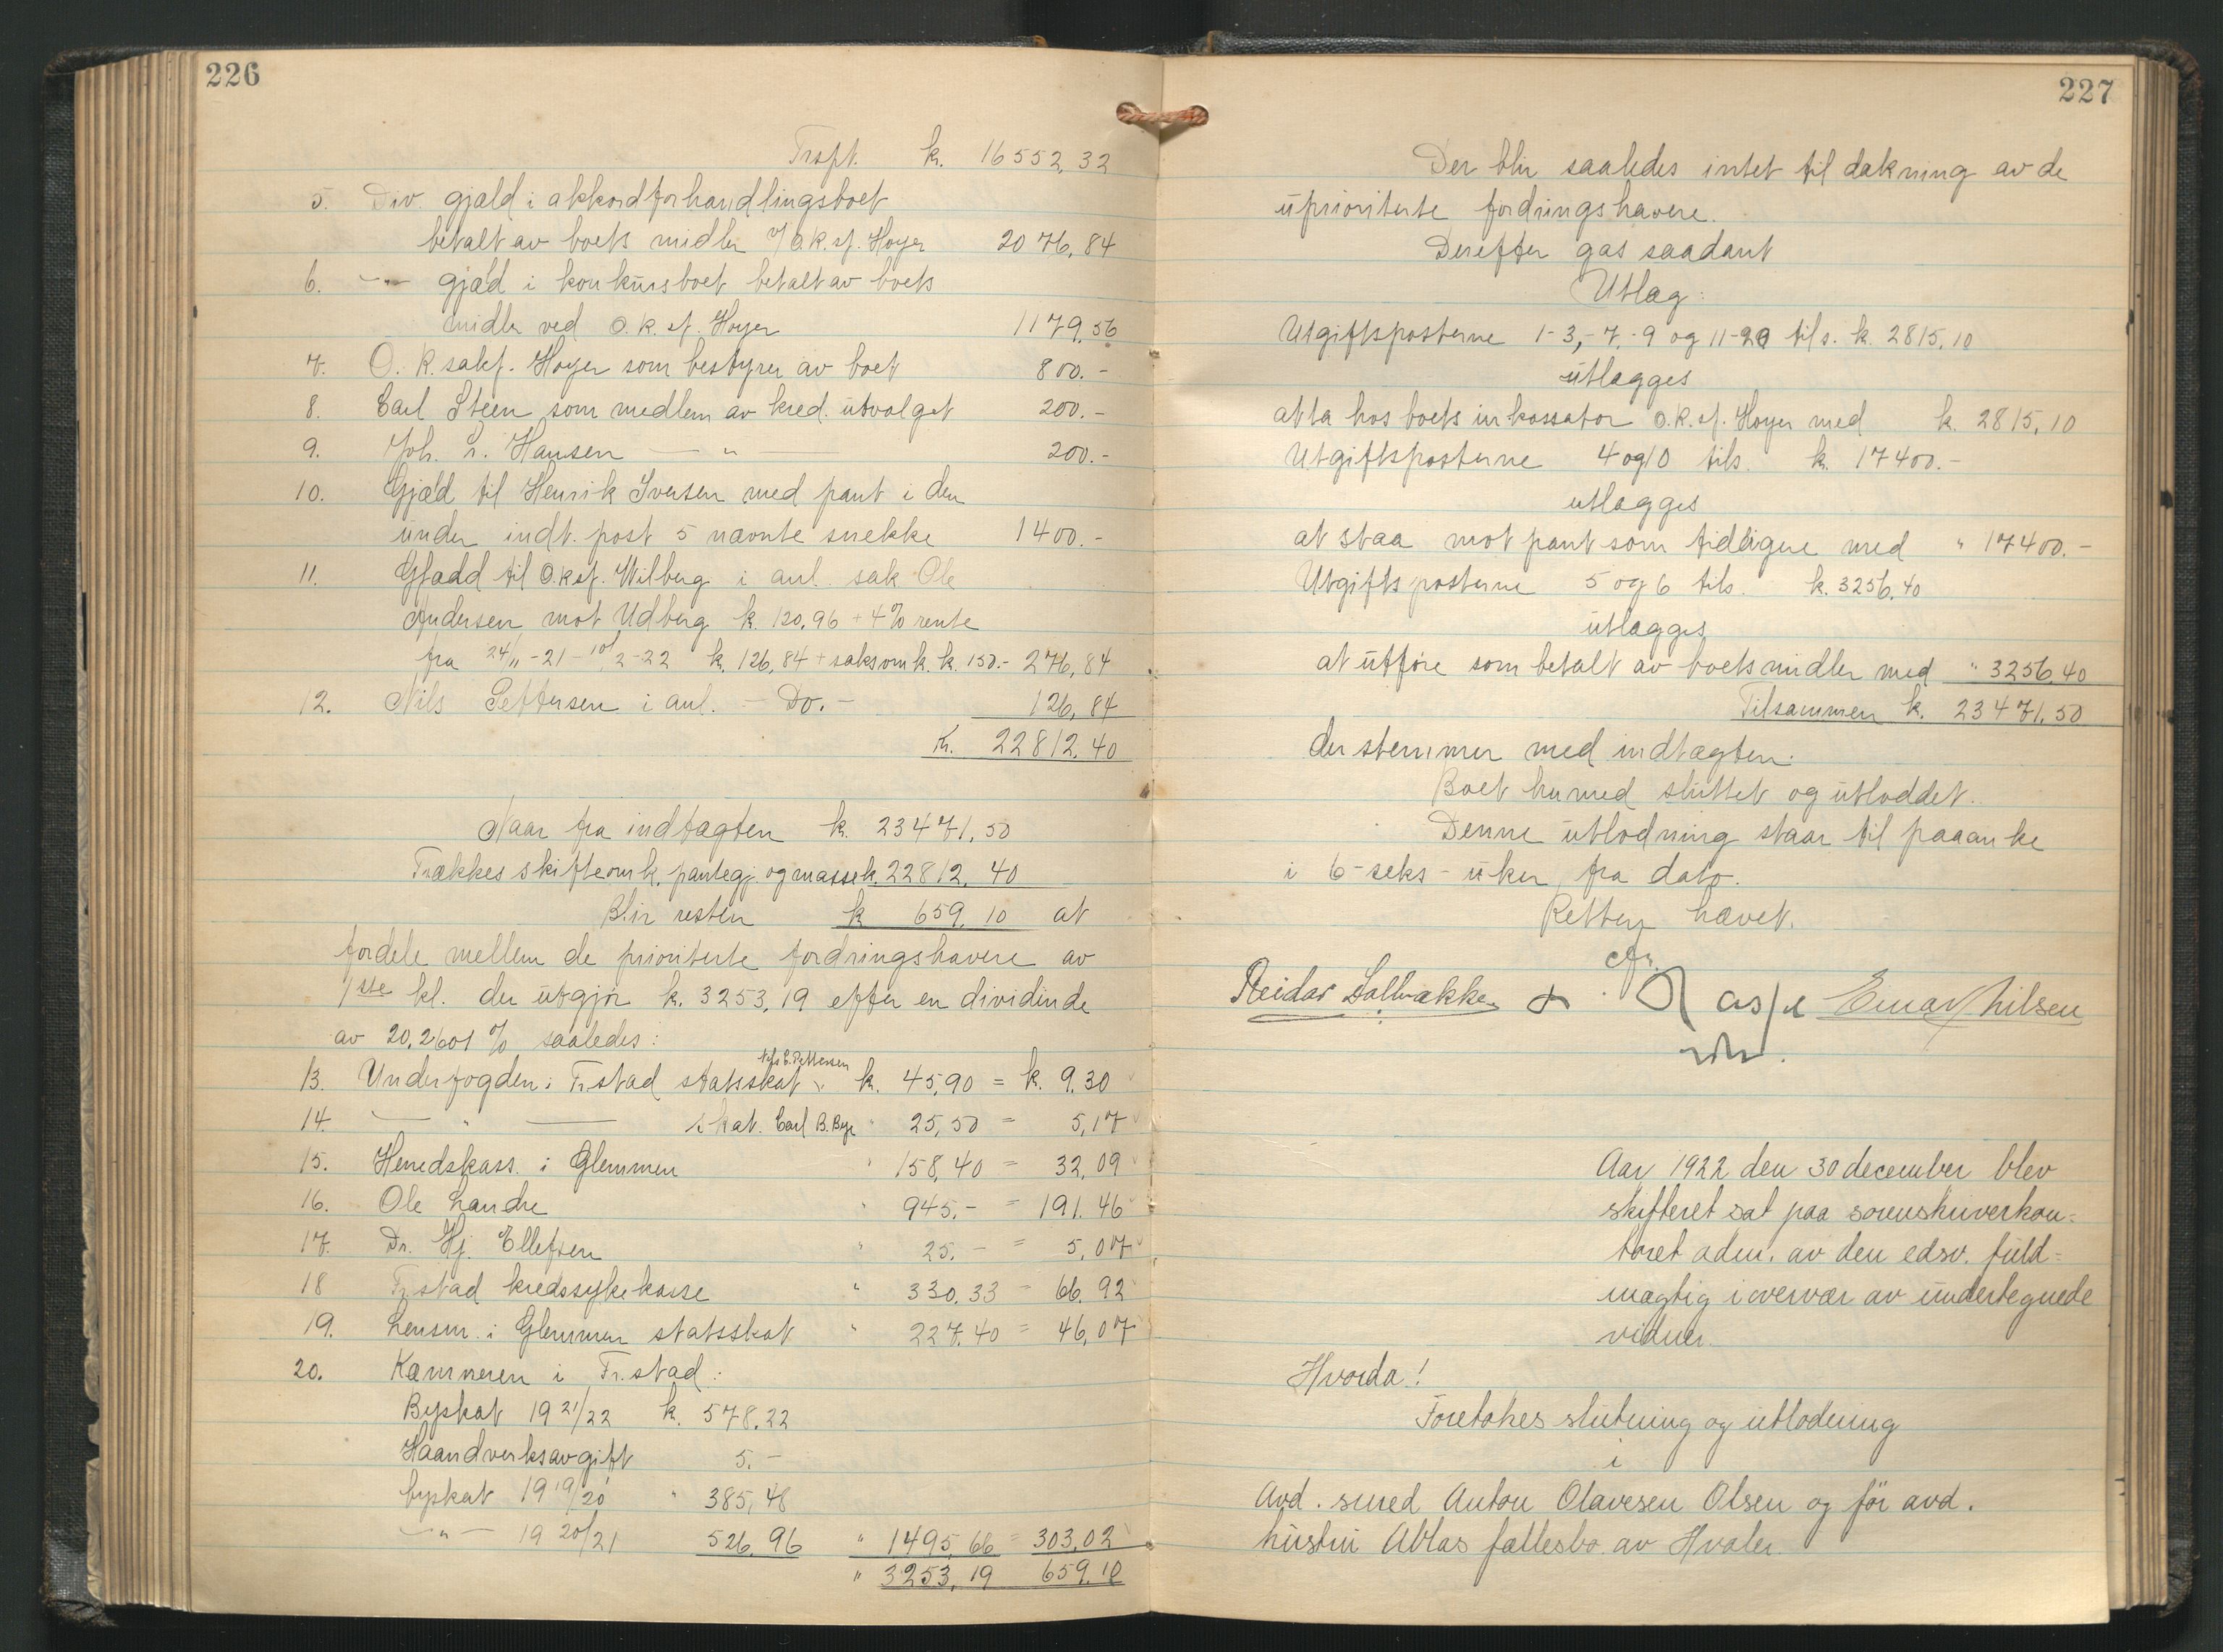 226
Trspt. k. 16552,32
5. Div. gjæld i akkordforhandlingsboet
betalt av boets midler v/ O.R.sf. Høyer 2076,84
6. -"- gjæld i konkursboet betalt av boets
midler ved O.R.sf. Høyer 1179,56
7. O.R.sakf. Høyer som bestyrer av boet 800.-
8. Carl Steen som medlem av kred.utvalget 200.-
9. Joh. L. Hansen — " — 200.-
10. Gjæld til Henrik Iversen med pant i den
under indt. post 5 nævnte snekke 1400.-
11. Gjæld til O.R.sf. Wilberg i anl. sak Ole
Andersen mot Udberg k. 120,96 + 4% rente
fra 24/11-21 - 10/2-22 k. 126,84 + saksomk. k. 150.- 276,84
12. Nils Pettersen i anl. - Do. - 126,84
Kr. 22812.40
Naar fra indtægten k. 23471,50
Trækkes skifteomk, pantegj. og massek. 22812,40
Blir resten k 659,10 at
fordele mellem de prioriterte fordringshavere av
1ste kl. der utgjør k. 3253,19 efter en dividende
av 20,2601 % saaledes:
Nils E. Pettersen
13. Underfogden i Fr.stad statsskat k. 45,90 = k. 9.30
14. — " — skat. Carl B. Bye " 25,50 = 5,17
15. Herredskass. i Glemmen " 158,40 = 32,09
16. Ole Landre " 945.- = 191.46
17. Dr. Hj. Ellefsen " 25.- = 5,07
18 Fr.stad kredssykekasse " 330.33 = 66.92
19. Lensm. i Glemmen statsskat " 227.40 = 46,07
20. Kæmneren i Fr.stad:
Byskat 1921/22 k. 578.22
Haandverksavgift 5.-
byskat 1919/20 " 385,48
-"- 1920/21 526.96 " 1495,66 = 303,02
" 3253,19 659.10
227
Der blir saaledes intet til dækning av de
uprioriterte fordringshavere.
Derefter gas saadant
Utlæg:
Utgiftsposterne 1-3,-7,-9 og 11-20 tils. k. 2815,10
utlægges
at ta hos boets inkassator O.R.sf. Høyer med k. 2815,10
Utgiftsposterne 4 og 10 tils. k. 17400.-
utlægges
at staa mot pant som tidligere med " 17400.-
Utgiftsposterne 5 og 6 tils. k. 3256,40
utlægges
at utføre som betalt av boets midler med " 3256.40
Tilsammen k. 23471,50
der stemmer med indtægten.
Boet hermed sluttet og utloddet.
Denne utlodning staar til paaanke
i 6 - seks - uker fra dato.
Retten hævet.
Reidar Solbrække Einar Nilsen
Aar 1922 den 30 december blev
skifteret sat paa sorenskriverkon-
toret adm. av den edsv. fuld-
mægtig i overvær av undertegnede
vidner.
Hvorda!
Foretokes slutning og utlodning
i
Avd. smed Anton Olavesen Olsen og før avd.
hustru Ablas fællesbo av Hvaler.